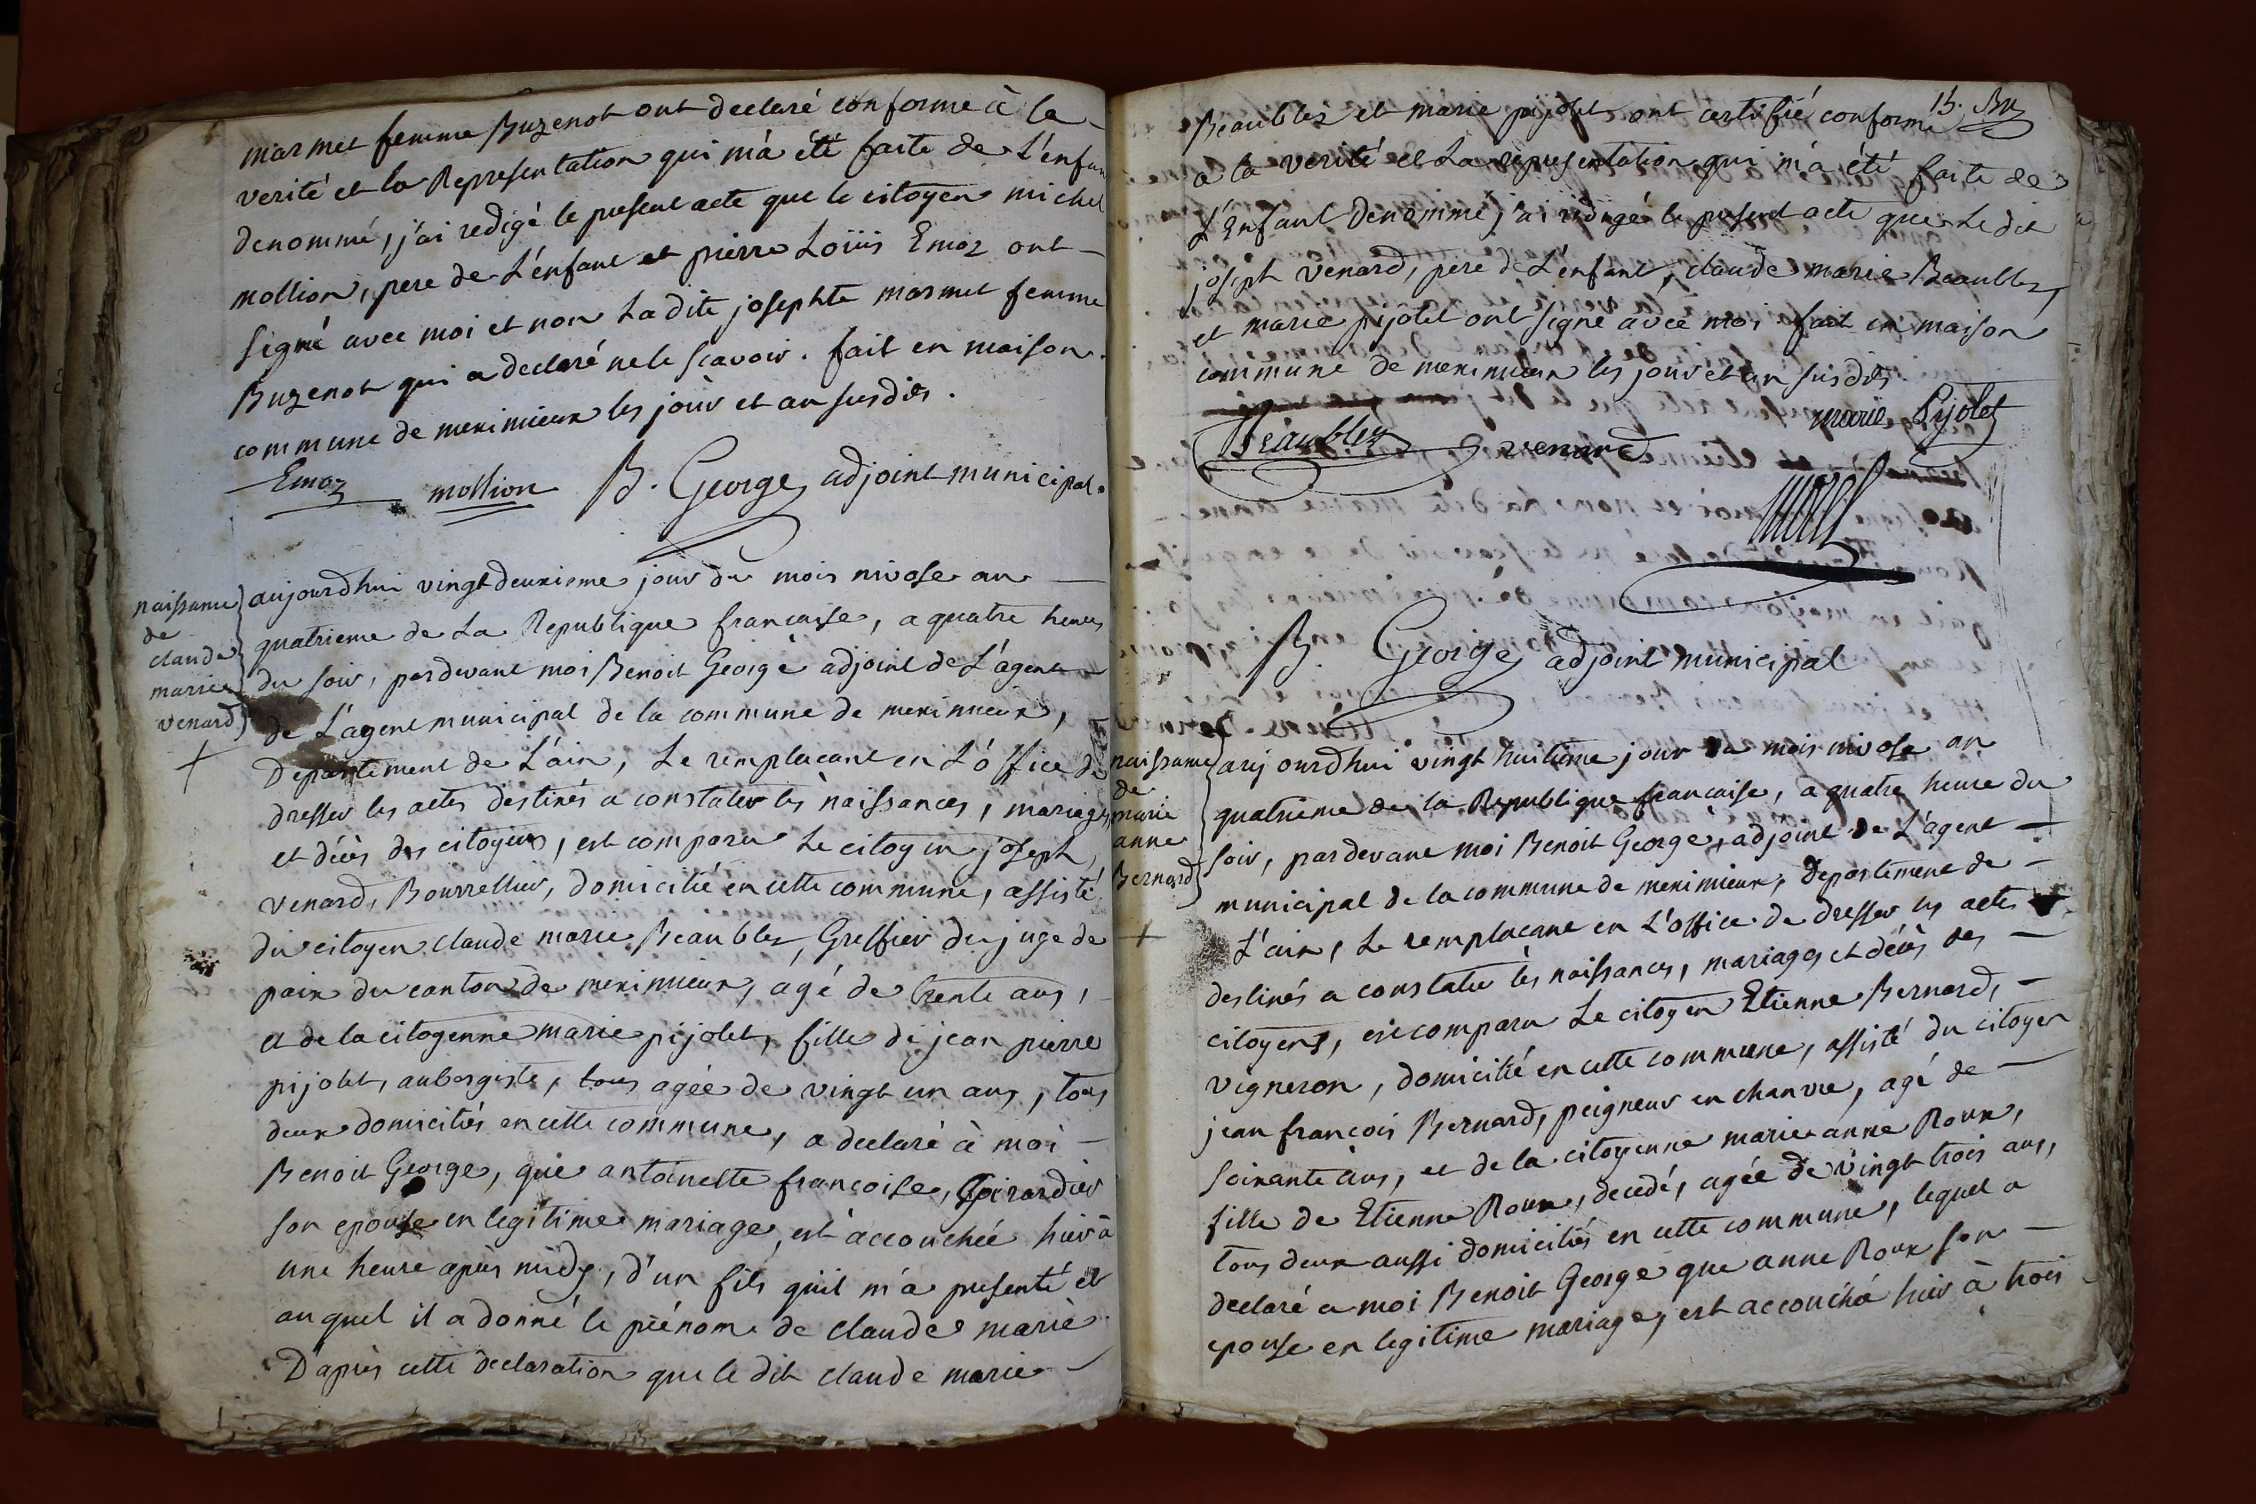 marmet femme Buzenot ont declaré conforme à la
verité et la Representation qui m'a été faite de L'enfan
denommé, j'ai redigé le present acte que le citoyen michel
mollion, pere de L'enfant et pierre Loüis Emoz ont
signé avec moi et non Ladite josephte marmet femme
Buzenot qui a declaré ne le scavoir. fait en maison
commune de meximieux les jour et an susdits.
Emoz mollion B. George adjoint municipal.
naissance
de
claude
marie
venard
aujourdhui vingt deuxieme jour du mois nivose an
quatrieme de La Republique francaise, a quatre heures
du soir, pardevant moi Benoit George adjoint de L'agent
de L'agent municipal de la commune de meximieux,
Departement de L'ain, Le remplacant en L'office de
dresser les actes destinés a constater les naissances, mariages
et décès des citoyens, est comparu Le citoyen joseph
venard, Bourrellier, domicilié en cette commune, assisté
du citoyen claude marie Beaublez, Greffier du juge de
paix du canton de meximieux, agé de trente ans,
et de la citoyenne marie pijolet, fille de jean pierre
pijolet, aubergiste, tous agée de vingt un ans, tous
deux domiciliés en cette commune, a declaré à moi
Benoit George, que antoinette francoise, Goirardier
son epouse en legitime mariage, est accouchée hier à
une heure après midy, d'un fils qu'il m'a presenté et
auquel il a donné le prénom de claude marie
D'après cette declaration que le dit claude marie
15. Bu
Beaublez et marie pijolet ont certifié conforme
a la verité et La representation qui m'a été faite de
L'Enfant denommé j'ai redigé le present acte que Le dit
joseph venard, pere de L'enfant, claude marie Beaublez,
et marie pijolet ont signé avec moi fait en maison
commune de meximieux les jour et an susdits
Beaublez venard marie Pijolet
B. George adjoint municipal
naissance
de
marie
anne
Bernard
aujourdhui vingt huitieme jour du mois nivose an
quatrieme de la Republique francaise, a quatre heure du
soir, pardevant moi Benoit George, adjoint de L'agent
municipal de la commune de meximieux, departement de
L'ain, Le remplacant en L'office de dresser les actes
destinés a constater les naissances, mariages et décès des
citoyens, est comparu Le citoyen Etienne Bernard,
vigneron, domicilié en cette commune, assisté du citoyen
jean francois Bernard, peigneur en chanvre, agé de
soixante ans, et de la citoyenne marie anne Roux,
fille de Etienne Roux, decedé, agée de vingt trois ans,
tous deux aussi domiciliés en cette commune, lequel a
declaré a moi Benoit George que anne Roux son
epouse en legitime mariage, est accouchée hier à trois